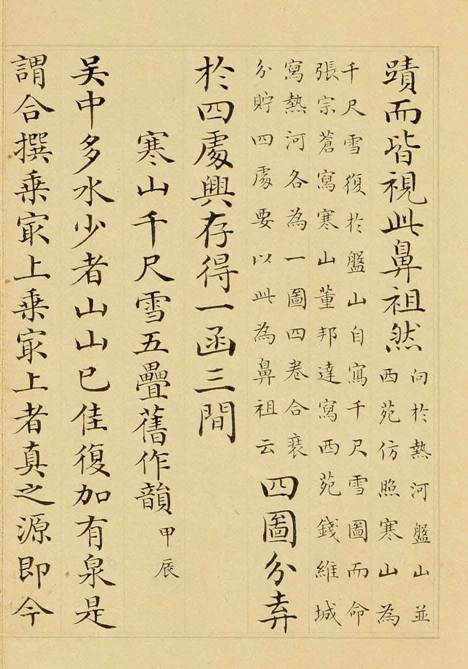 蹟而皆視此鼻祖然
向於熱河盤山並
西苑仿照寒山為
千尺雪復於盤山自寫千尺雪圖而命
張宗蒼寫寒山董邦達寫西苑錢維城
寫熱河各為一圖四卷合袠
分貯四處要以此為鼻祖云
四圖分弆
於四處興存得一函三間
寒山千尺雪五疊舊作韻 甲辰
吳中多水少者山山已佳復加有泉是
謂合撰乘㝡上乘㝡上者真之源即今